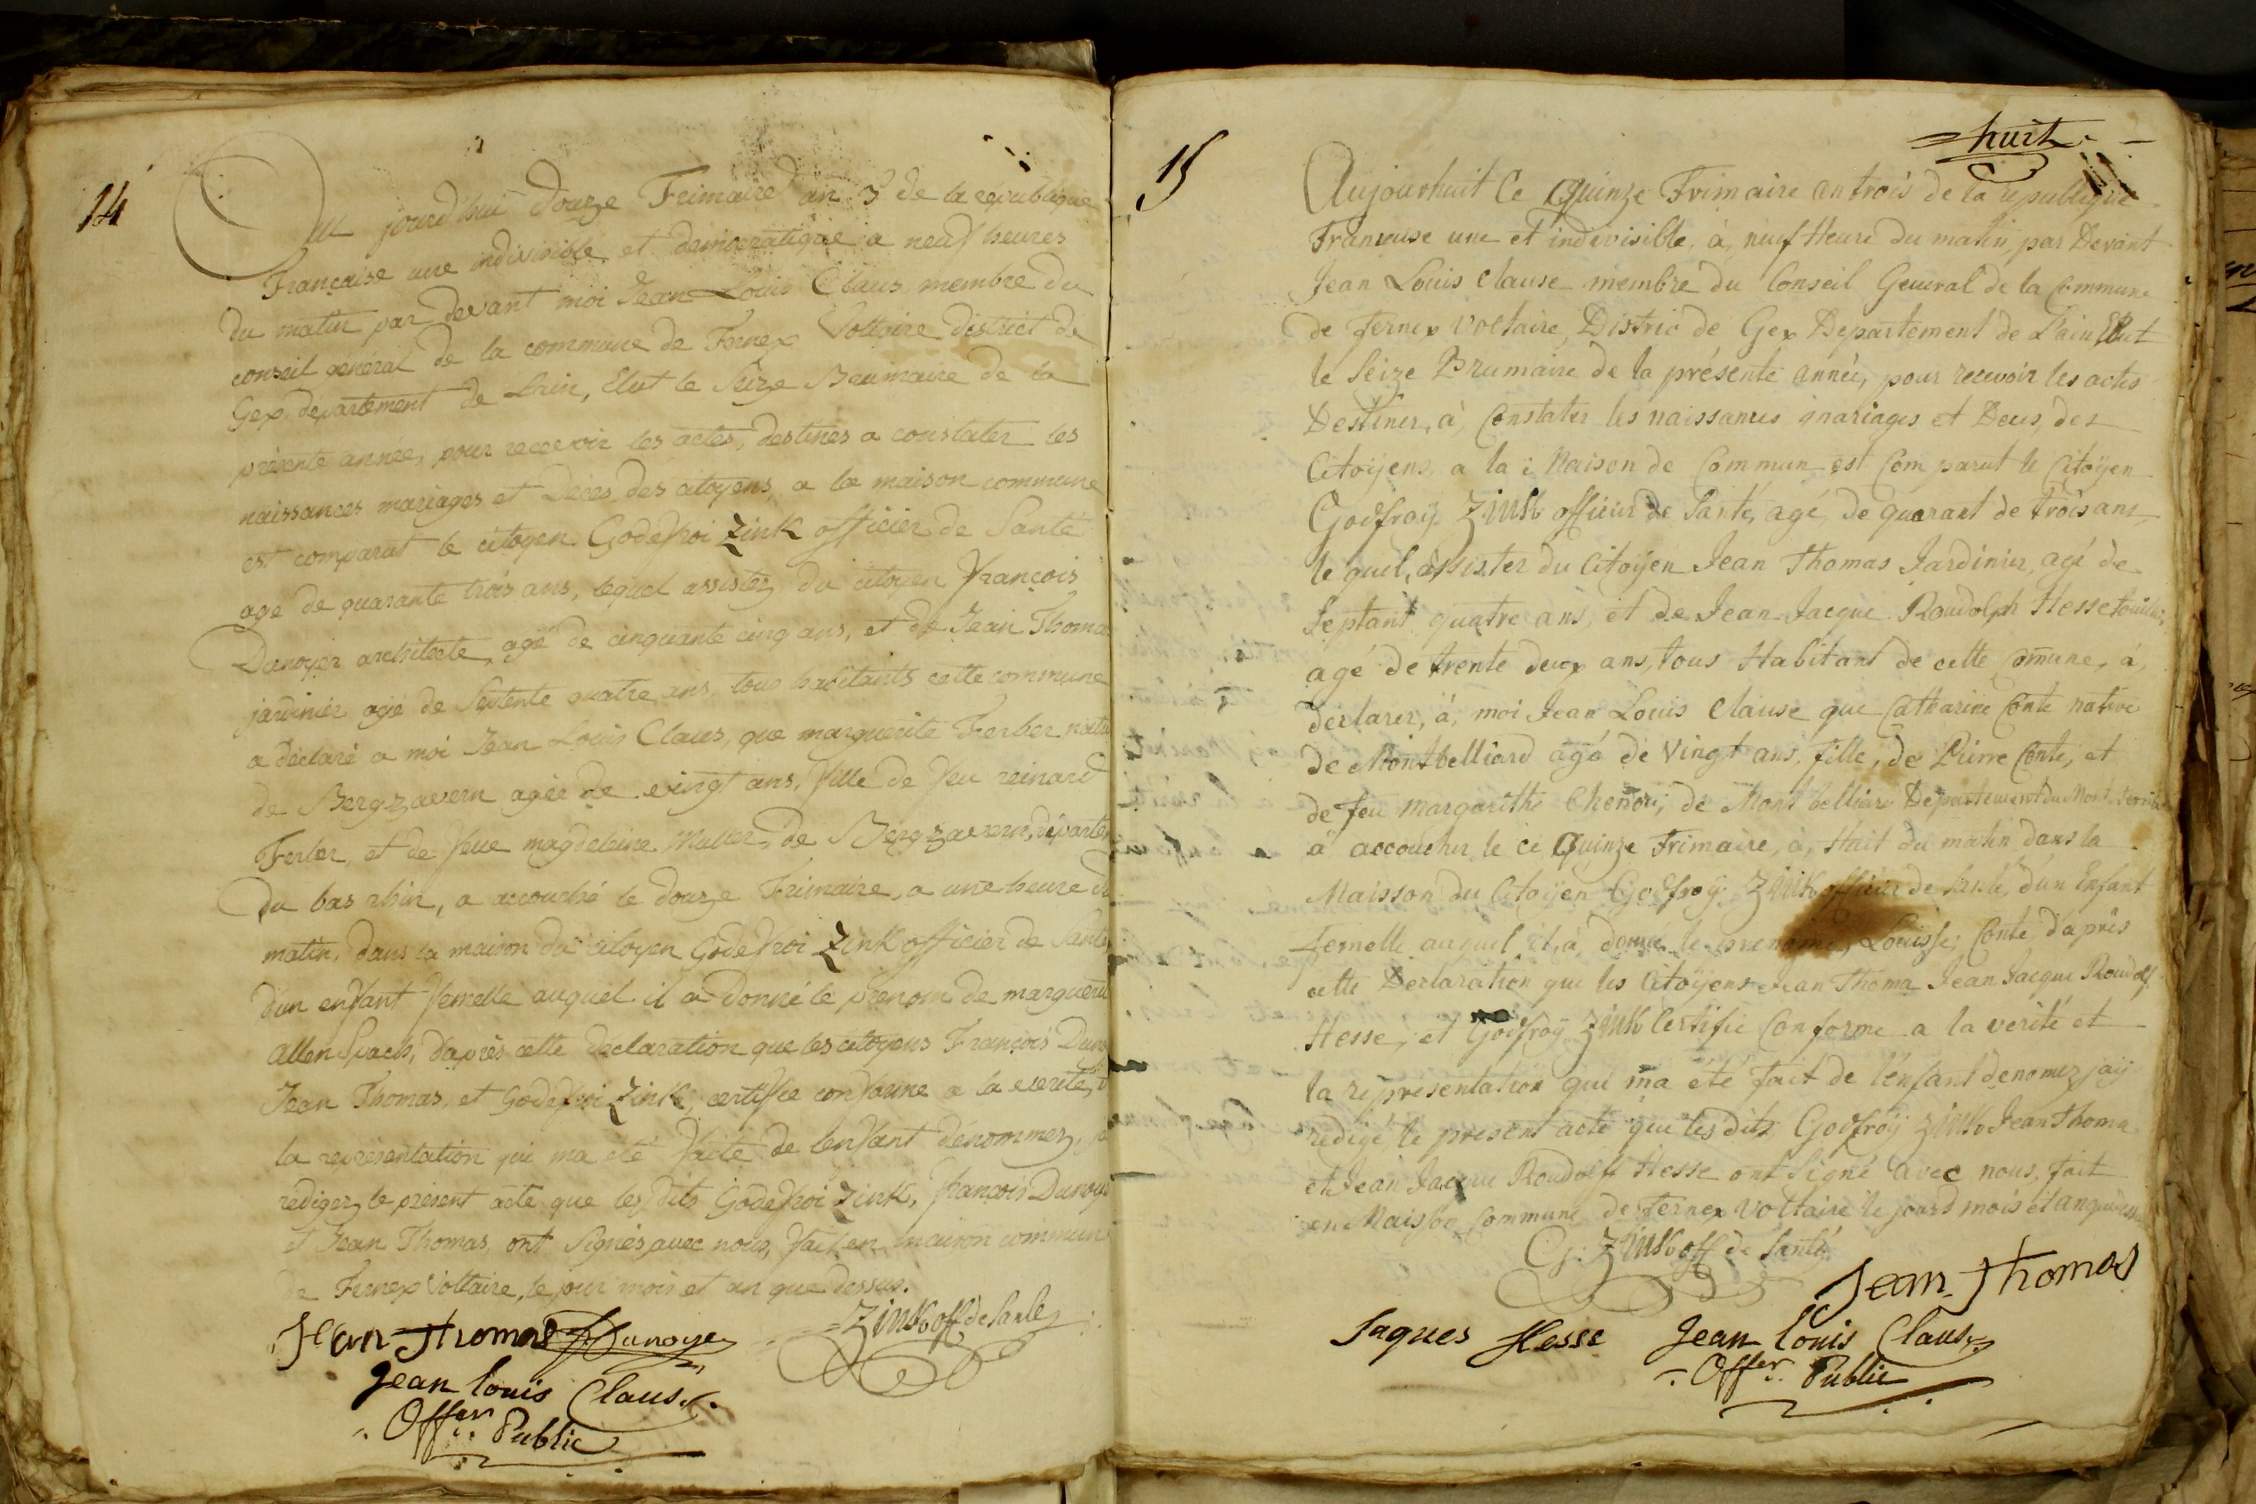 14
Au jourdhui Douze Frimaire an 3 de la republique
Française une indivisible et democratique a neuf heures
du matin par devant moi Jean Louis Claus membre du
conseil général de la commune de Fernex Voltaire district de
Gex département de Lain, Elut le Seize Brumaire de la
présente année, pour recevoir les actes, destinés a constater les
naissances mariages et Décès des citoyens, a la maison commune
est comparut le citoyen Godefroi Zink officier de Santé
age de quarante trois ans, lequel assistez du citoyen François
Dunoyer architecte, agé de cinquante cinq ans, et de Jean Thomas
jardinier agé de Septente quatre ans, tous habitants cette commune
a déclaré a moi Jean Louis Claus, que marguerite Ferber
de Bergzavern agée de vingt ans, fille de feu reinard
Ferber, et de feue magdeleine Muller, de Bergzavern, départe
du bas rhin, a accouché le douze Frimaire, a une heure du
matin, dans la maison du citoyen Godefroi Zink officier de Santé
d'un enfant femelle auquel il a donné le prénom de marguerit
allen Spach, d'après cette déclaration que les citoyens François Dun
Jean Thomas, et Godefroi Zink, certifie conforme a la verité,
la représentation qui ma été faite de lenfant dénommez,
rediger le présent acte que les dits Godefroi Zink, françois Dunoye
et Jean Thomas, ont Signés avec nous, fait en maison commune
de Fernex Voltaire, le jour mois et an que dessus.
Jean Thomas Dunoyer Zink off de Santé
Jean louis Claus
Offer Public
huit
15
Aujourhuit Ce Quinze Frimaire an trois de la republique
Franceuse une et indivisible, à, neuf Heure du matin, par Devant
Jean Louis Clause membre du Conseil General de la Commune
de Fernex Voltaire, Distric de Gex Departement de Lain Elut
le Seize Brumaire de la présente année, pour recevoir les actes
Destiner, à, Constater les naissances mariages et Deces, des
Citoÿens, a la Maison de Commun est Comparut le Citoÿen
Godfroÿ Zink officier de Santé, agé, de quarant de trois ans,
le quel, assister du Citoÿen Jean Thomas Jardinier, agé de
Septant quatre ans, et de Jean Jacque Roudolph Hesse
agé de trente deux ans, tous Habitant de cette Comune, à,
declarer, à, moi Jean Louis Clause que Catharine Conte native
de Montbelliard agé de Vingt ans, fille, de Pierre Conte, et
de feu margarithe de Mont belliard Departement du Mont Terrible
à accoucher le ce Quinze Frimaire, à, Hait du matin dans la
Maisson du Citoÿen Godfroÿ Zink officier de Santé, d'un Enfant
Femelle auquel il, à, donné le prenome, Louisse, Conté, d'après
cette Declaration que les Citoÿens Jean Thoma Jean Jacque Roudolf
Hesse, et Godfroÿ Zink Certifie Conforme a la verité et
la representation qui ma été fait de l'enfant denomez jaÿ
redigé le present acte que les dits Godfroÿ Zink Jean Thoma
et Jean Jacque Roudolff Hesse ont Signé avec nous, fait
en Maison Commune de Fernex Voltaire le jour mois et anque
G: Zink off de Santé
Jean Thomas
Jaques Hesse Jean louis Claus
Offer Public